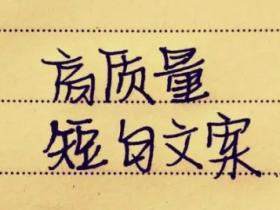 高质量
短句文案